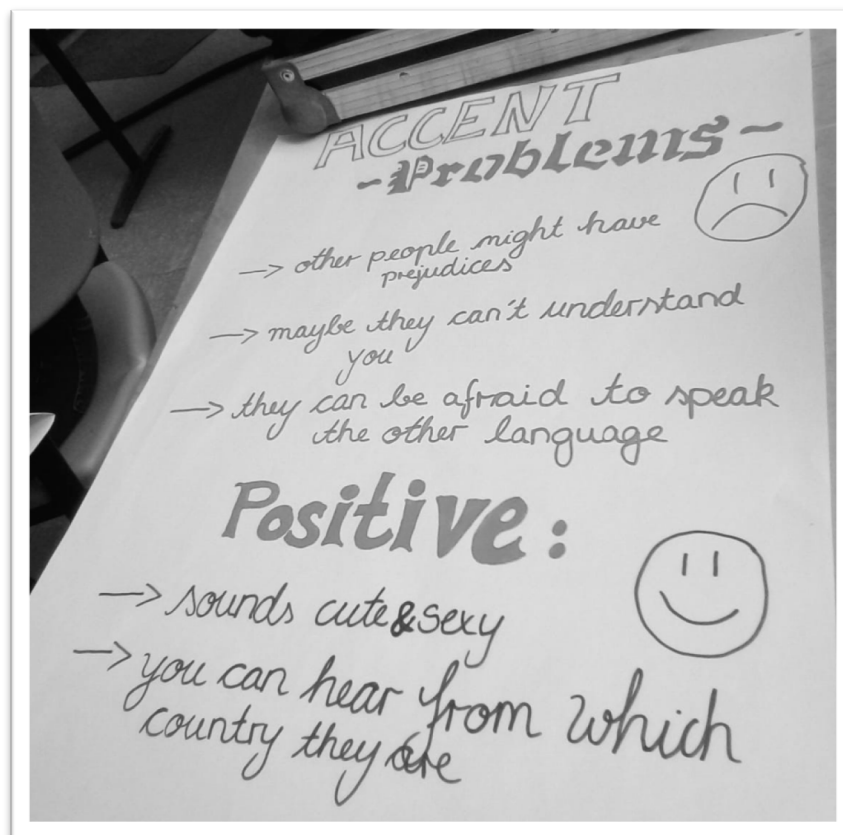 ACCENT
-Problems-
→ other people might have
prejudices
→ maybe they can't understand
you
→ they can be afraid to speak
the other language
Positive:
→ sounds cute & sexy
→ you can hear from which
country they are